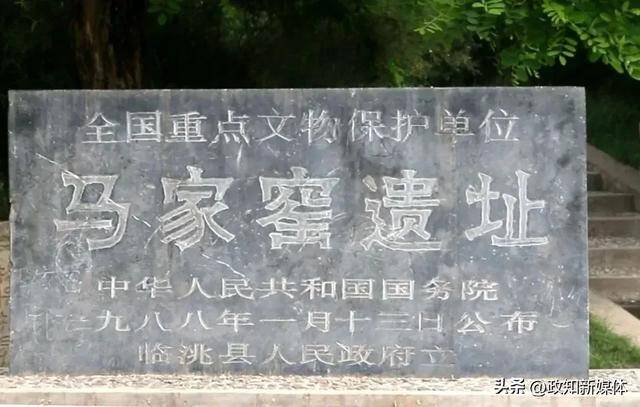 全国重点文物保护单位
马家窑遗址
中华人民共和国国务院
一九八八年一月十三日公布
临洮县人民政府立
头条 @政知新媒体